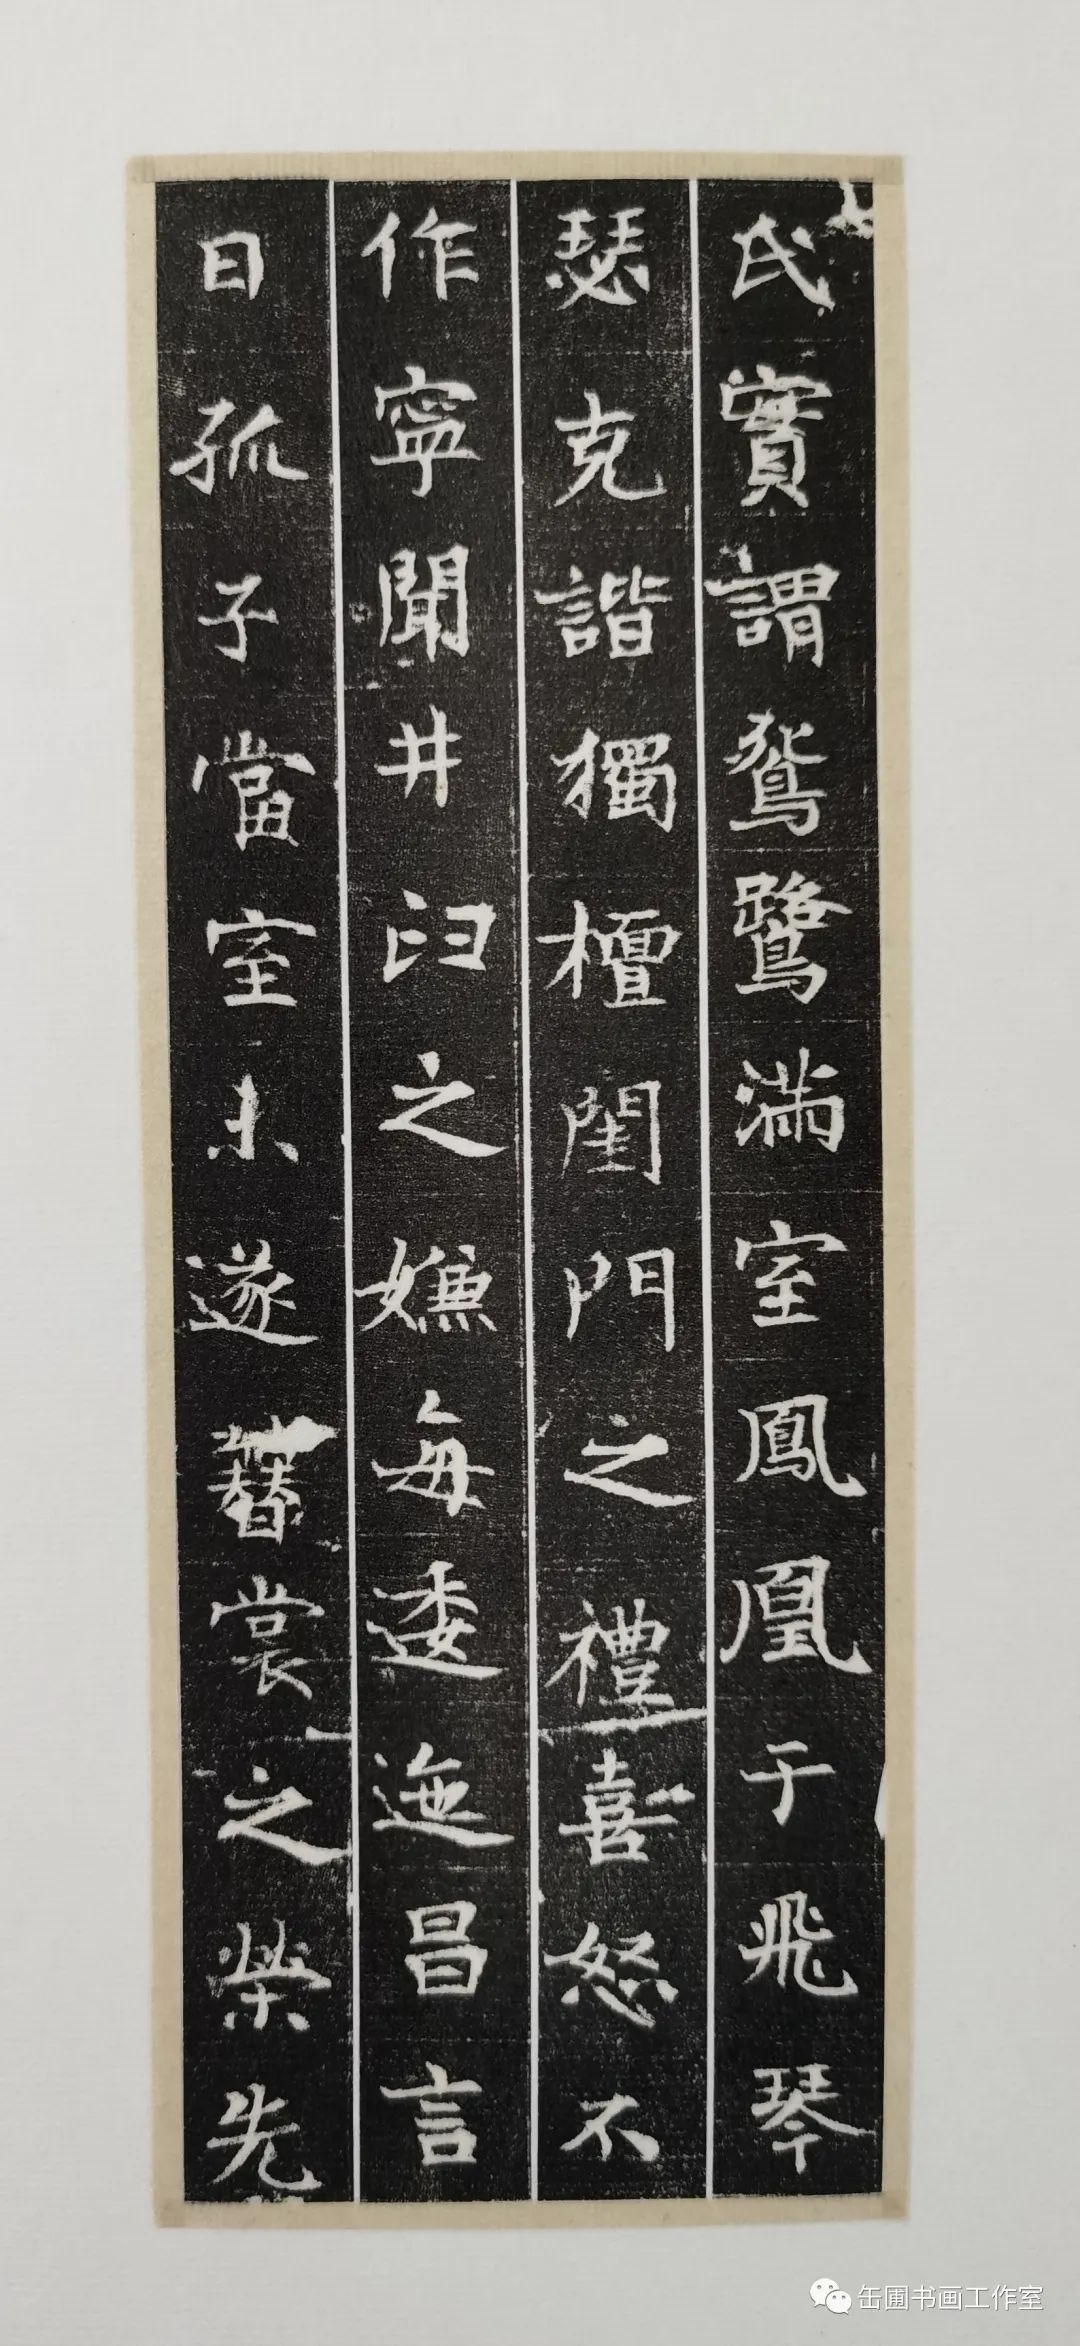 氏實謂鴛鷺滿室鳳凰于飛琴
瑟克諧獨檀閨門之禮喜怒不
作寧聞井臼之嫌每逶迤昌言
日孤子當室未遂簪裳之榮先
缶圃书画工作室